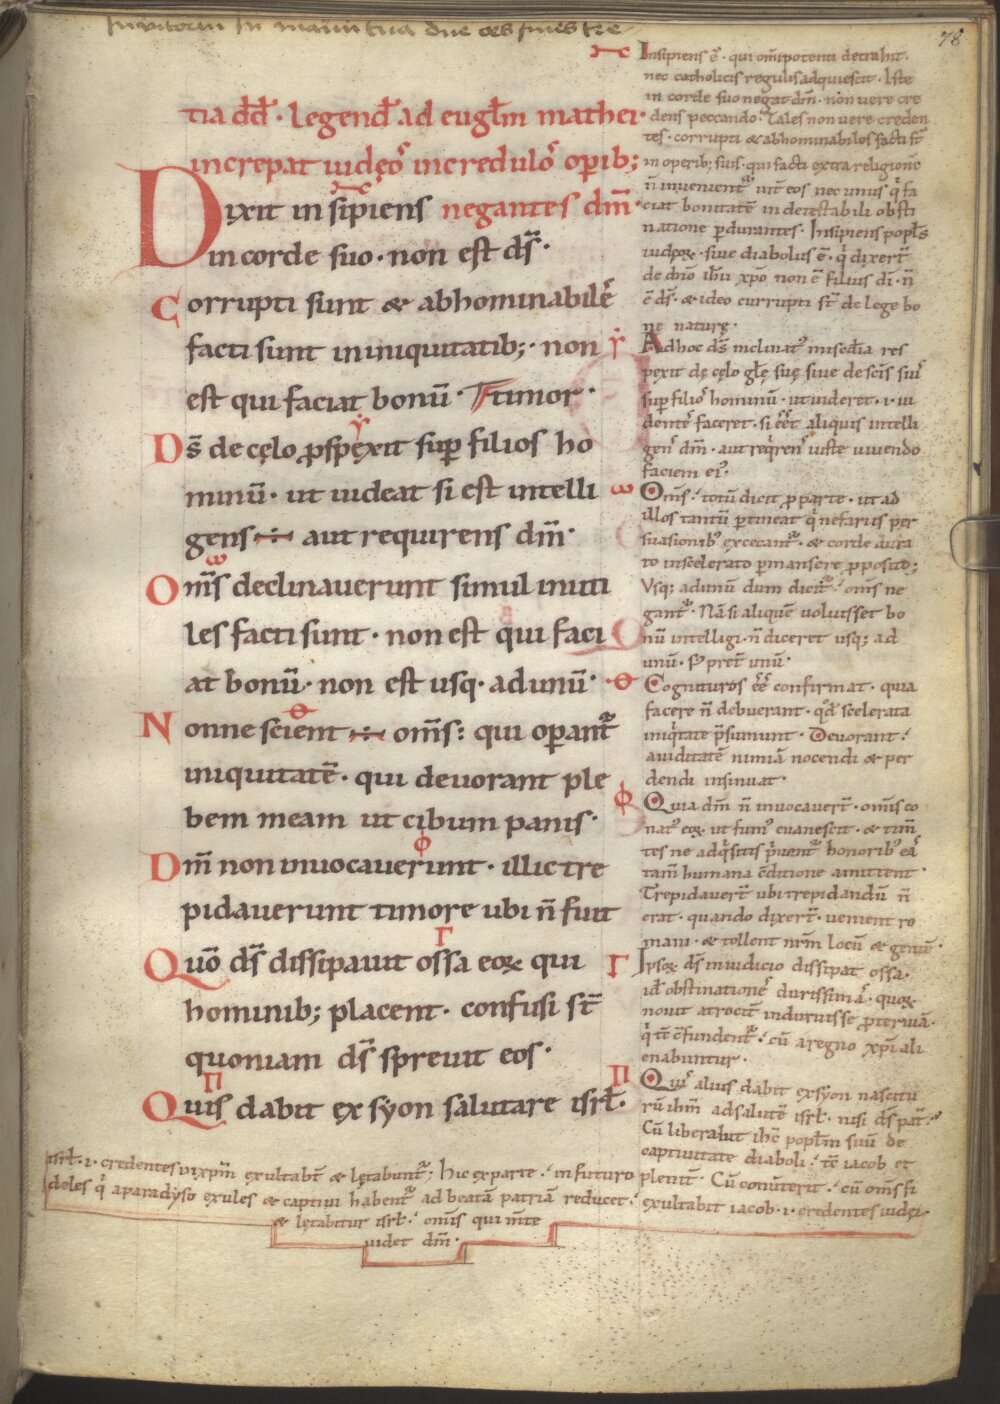 78
tia dđ · legend̄ ad euglm̄ mathei·
increpat iudęō incredulō opib;
Dixit insipiens negantes dm̄·
in corde suo · non est ds̄·
Corrupti sunt & abhominabilē
facti sunt in iniquitatib; · non
est qui faciat bonū · timor ·
Ds̄ de cęlo ꝓspexit suꝑ filios ho
minū · ut uideat si est intelli
gens aut requirens dm̄·
Oms̄ declinauerunt simul inuti
les facti sunt · non est qui faci
at bonū · non est usq· ad unū·
Nonne scient oms̄ : qui operant̄
iniquitatē · qui deuorant ple
bem meam ut cibum panis·
Dm̄ non inuocauerunt · illic tre
pidauerunt timore ubi n̄ fuit
Quō ds̄ dissipauit ossa eoꝝ qui
hominib; placent · confusi st̄
quoniam ds̄ spreuit eos·
Quis dabit ex syon salutare isrł·
Insipiens ē · qui om̄ipotenti detrahit·
nec catholicis regulis adquiescit · Iste
in corde suo negat dm̄ · non uere cre
dens peccando · Tales non uere creden
tes · corrupti & abhominabiles facti st̄
in operib; suis · qui facti extra religionē
n̄ inuenient̄ int̄ eos nec unus q̇ fa
ciat bonitatē in detestabili obsti
natione ꝑdurantes · Insipiens popłs
iudęoꝝ · siue diabolus ē · q̇ dixert̄
de dn̄o ihu xp̄o non ē filius di · n̄
ē ds̄ · & ideo currupti st̄ de lege bo
nę naturę·
Ad hoc ds̄ inclinat' misedia res
pexit dę cęlo głę suę siue de scis sui'
suꝑ filio' hominū · ut uideret · i · ui
dente' faceret · si eēt aliquis intelli
gen' dm̄ · aut req̇ren' iuste uiuendo
faciem ei'·
Oms̄ · totū dicit ꝓ parte · ut ad
illos tantū ꝑtineat q̇ nefariis per
suasionib' excecant̄ · & corde dura
to in scelerato ꝑmansere ꝓposito;
Vsq; ad unū dum dicit̄ · oms̄ ne
gant̄ · Nā si aliquē uoluisset bo
nū intelligi · n̄ diceret usq; ad
unū · s; pret̄ unū·
Cognituros eē confirmat · quia
facere n̄ debuerant · qd̄ scelerata
iniq̇tate p̄sumunt · Deuorant·
auiditatē nimiā nocendi & per
dendi insinuat·
Quia dm̄ n̄ inuocauert̄ · om̄is co
nat' eoꝝ ut fum' euanescit · & tim̄
tes ne adq̇sitis ṗuent̄ honorib' eā
tam̄ humana c̄ditione amittent·
Trepidauert̄ ubi trepidandū n̄
erat · quando dixert̄ · uenient ro
mani · & tollent nrm̄ locū & gentē·
Ipsoꝝ ds̄ in iudicio dissipat ossa·
id̄ obstinatione' durissimā · quoꝝ
nouit atrocit̄ induruisse ꝓteruiā·
q̇ tē c̄fundent̄ · cū a regno xp̄i ali
enabuntur·
Qui' alius dabit ex syon nascitu
rū ihm̄ ad salutē isrł · nisi ds̄ pat̄·
Cū liberabit ihc̄ popłm suū de
captiuitate diaboli · tē iacob et
isrł · i · credentes in xp̄m exultabt̄ & lętabunt̄ · hic ex parte · in futuro plenit̄ · Cū conūterit · cū oms̄ fi
doles q̇ a paradyso exules & captiui habent̄ ad beatā patriā reducet · exultabit iacob · i · credentes iudęi·
& lętabitur isrł · omis qui mt̄e
uidet dm̄·